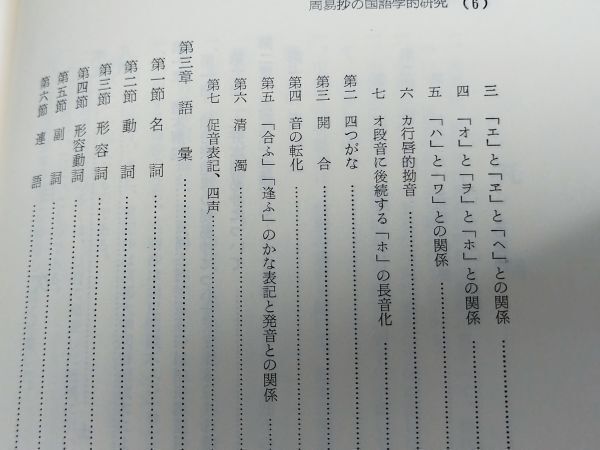 周易抄の国語学的研究 (6)
三 「エ」と「ヱ」と「ヘ」との関係
四 「オ」と「ヲ」と「ホ」との関係
五 「ハ」と「ワ」との関係
六 カ行唇的拗音
七 オ段音に後続する「ホ」の長音化
第二 四つがな
第三 開合
第四 音の転化
第五 「合ふ」「逢ふ」のかな表記と発音との関係
第六 清濁
第七 促音表記、四声
第三章 語彙
第一節 名詞
第二節 動詞
第三節 形容詞
第四節 形容動詞
第五節 副詞
第六節 連語